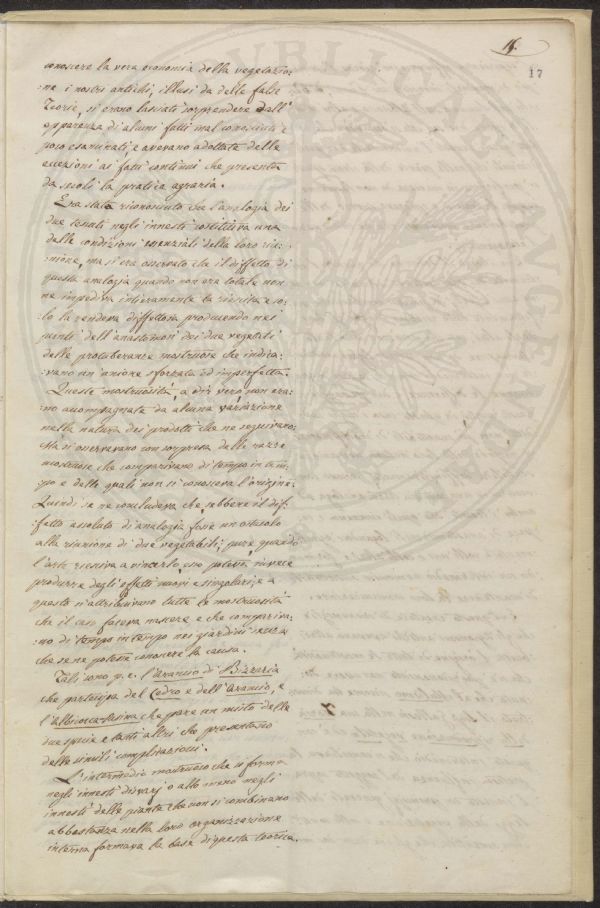 15.
17
conoscere la vera economia della vegetazio:
:ne i nostri antichi, illusi da delle false
Teorie, si erano lasciati sorprendere dall'
apparenza di alcuni fatti mal conosciuti e
poco esaminati, e avevano adottate delle
eccezioni ai fatti continui che presenta
da secoli la pratica agraria.
Era stato riconosciuto che l'analogia dei
due tessuti negli innesti costituiva una
delle condizioni essenziali della loro riu:
:nione, ma si era osservato che il diffetto di
questa analogia quando non era totale non
ne impediva intieramente la riuscita e so:
:lo la rendeva diffettosa producendo nei
punti dell'anastomosi dei due vegetali
delle protuberanze mostruose che indica:
:vano un'unione sforzata ed imperfetta.
Queste mostruosità, a dir vero, non era:
:no accompagnate da alcuna variazione
nella natura dei prodotti che ne seguivano:
Ma si osservavano con sorpresa delle razze
mostruose che comparivano di tempo in tem:
:po e delle quali non si conosceva l'origine.
Quindi se ne concludeva, che, sebbene il dif:
:fetto assoluto di analogia fosse un ostacolo
alla riunione di due vegetabili, pure quando
l'arte riesciva a vincerlo, esso poteva, invece
produrre degli effetti nuovi e singolari, e a
questo s'attribuivano tutte le mostruosità
che il caso faceva nascere e che compariva:
:no di tempo in tempo nei giardini senza
che se ne potesse conoscere la causa.
Tali sono p. e. l'arancio di Bizzaria
che partecipa del Cedro e dell'arancio, e
che pare un misto delle
due specie e tanti altri che presentano
delle simili complicazioni.
L'intermedio mostruoso che si forma
negli innesti disvarj o almeno negli
innesti delle piante che non si combinano
abbastanza nella loro organizzazione
interna formava la base di questa teorica.